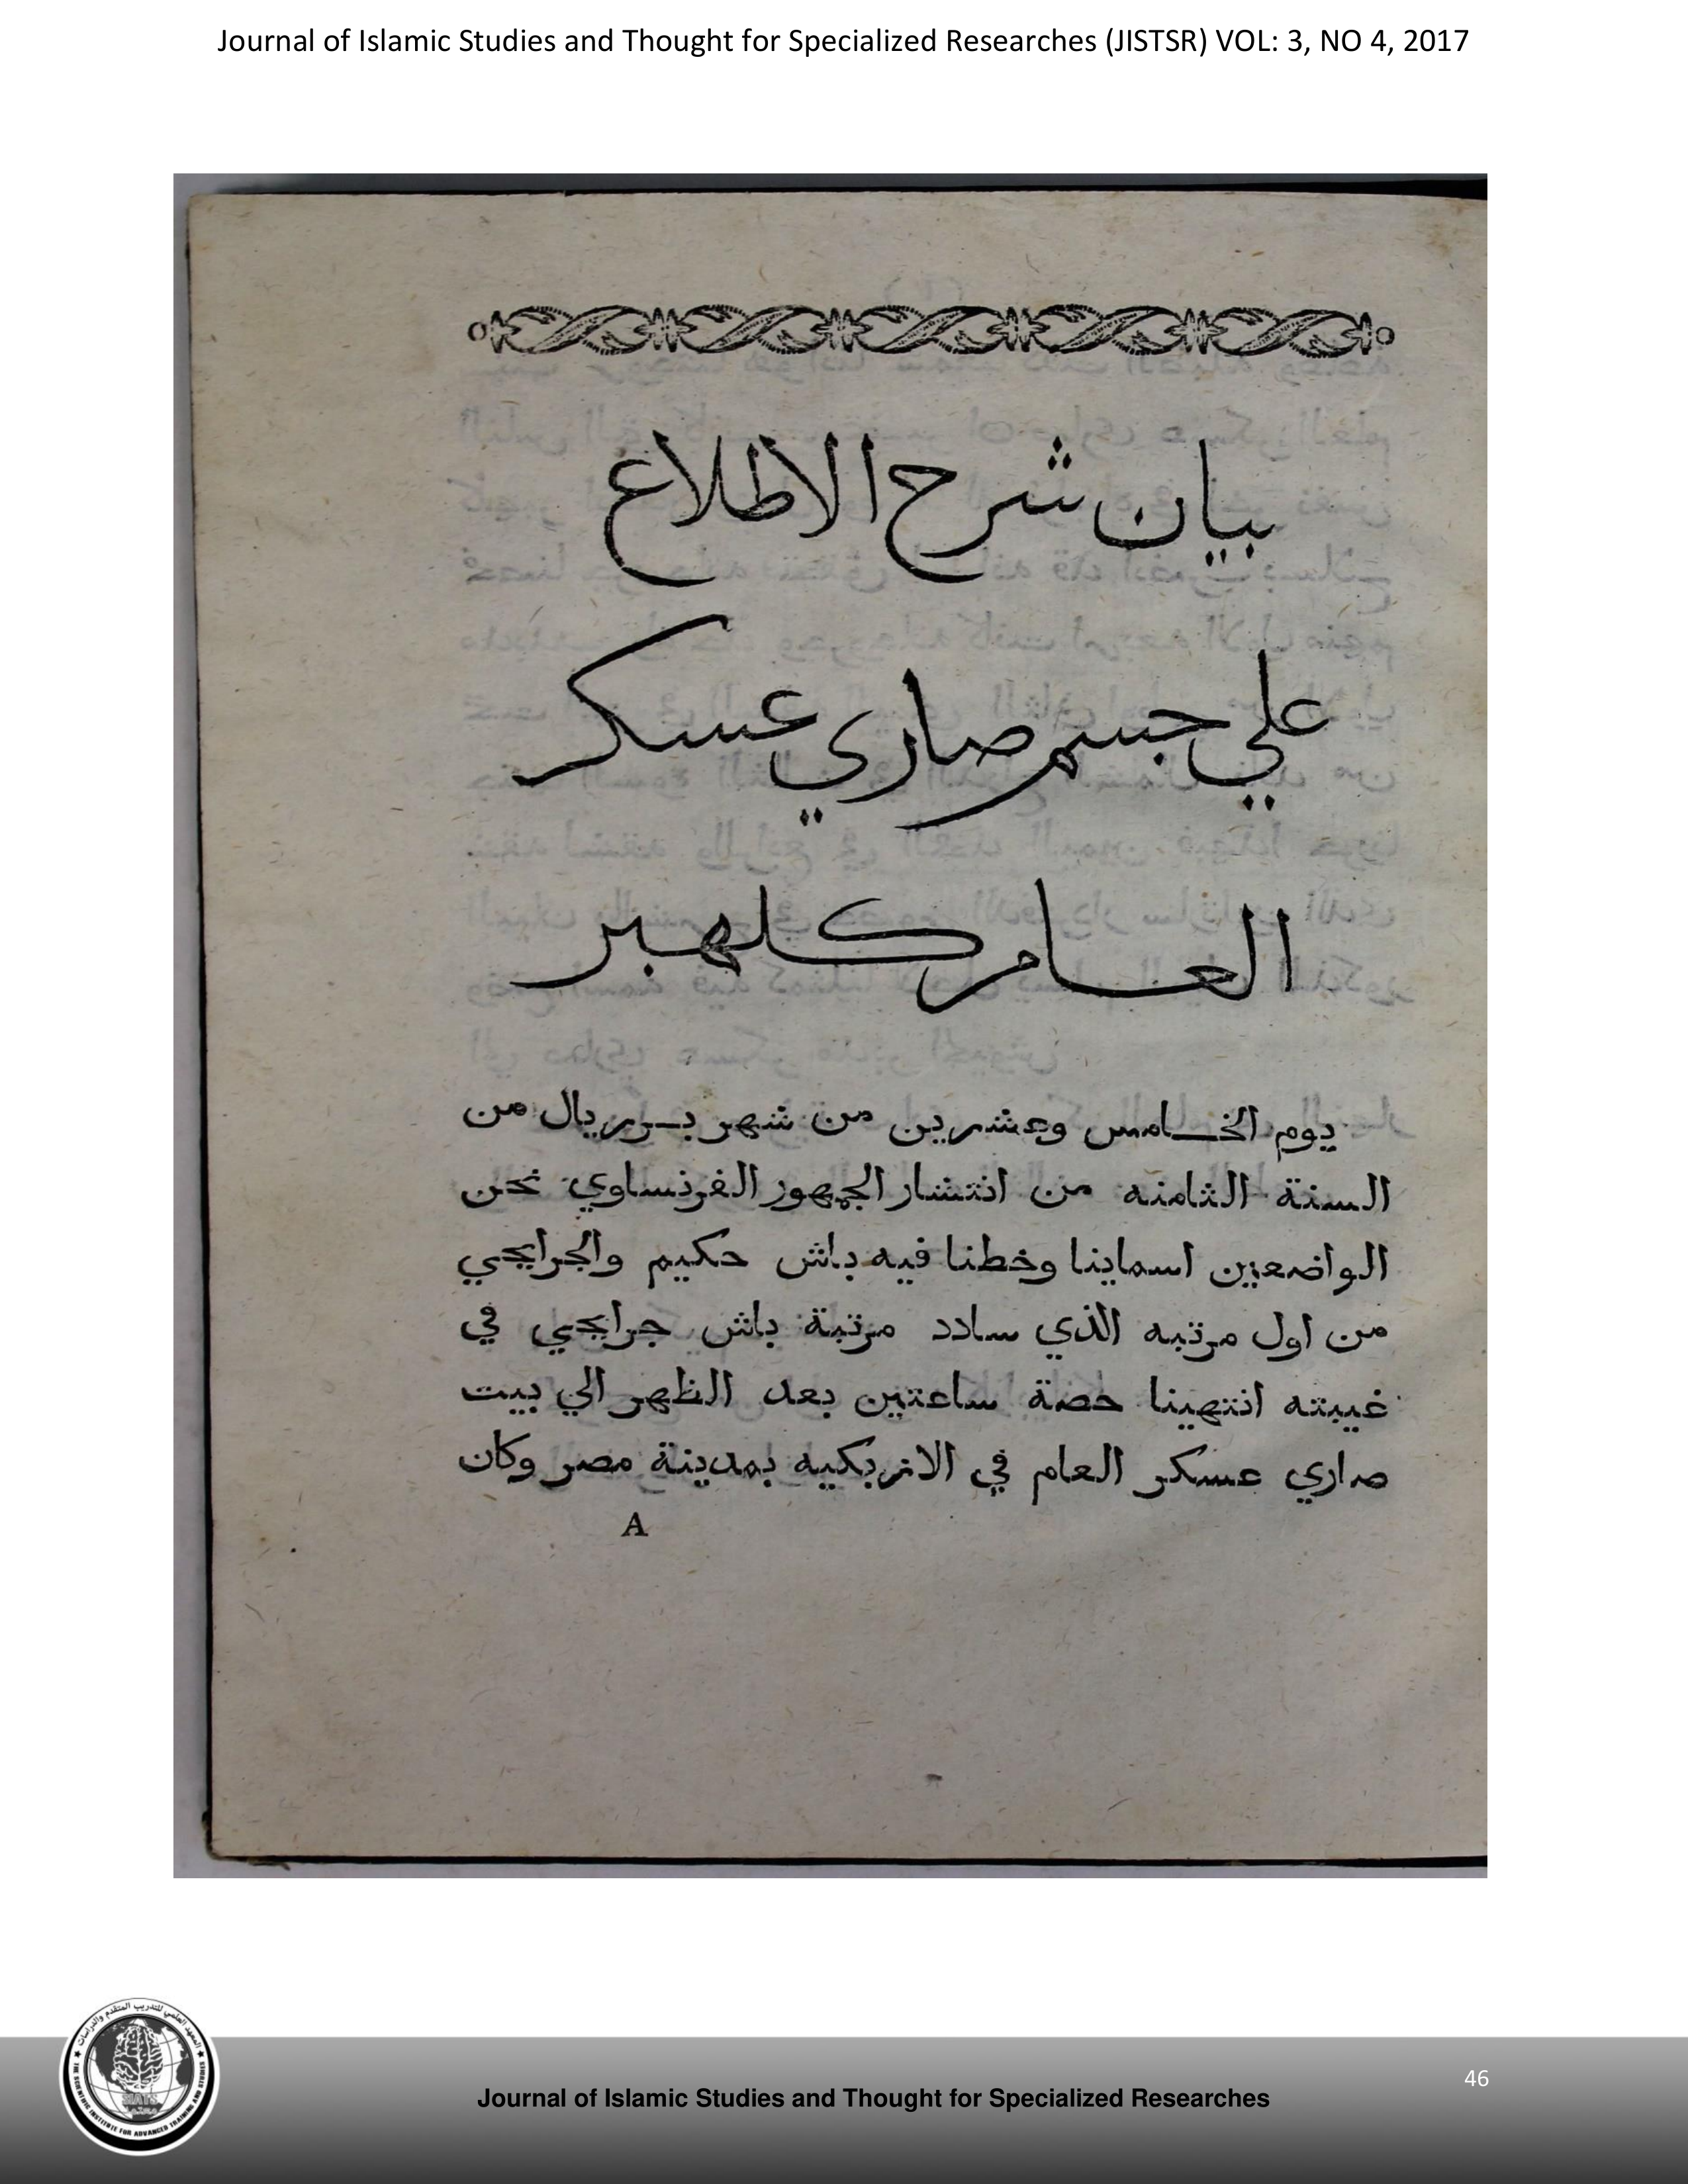 Journal of Islamic Studies and Thought for Specialized Researches (JISTSR) VOL: 3, NO 4, 2017
بيان شرح الاطلاع
علي جسم صاري عسكر
العام كلهبر
يوم الخامس وعشرين من شهر بريريال من
السنة الثامنه من انتشار الجمهور الفرنساوي نحن
الواضعين اسماينا وخطنا فيه باش حكيم والجرايحي
من اول مرتبه الذي سادد مرتبة باش جرايحي في
غيبته انتهينا حصة ساعتين بعد الظهر الي بيت
صاري عسكر العام في الازبكيه بمدينة مصر وكان
A
46
Journal of Islamic Studies and Thought for Specialized Researches
المعهد العلمي للتدريب المتقدم والدراسات
THE SCIENTIFIC INSTITUTE FOR ADVANCED TRAINING AND STUDIES
SIATS